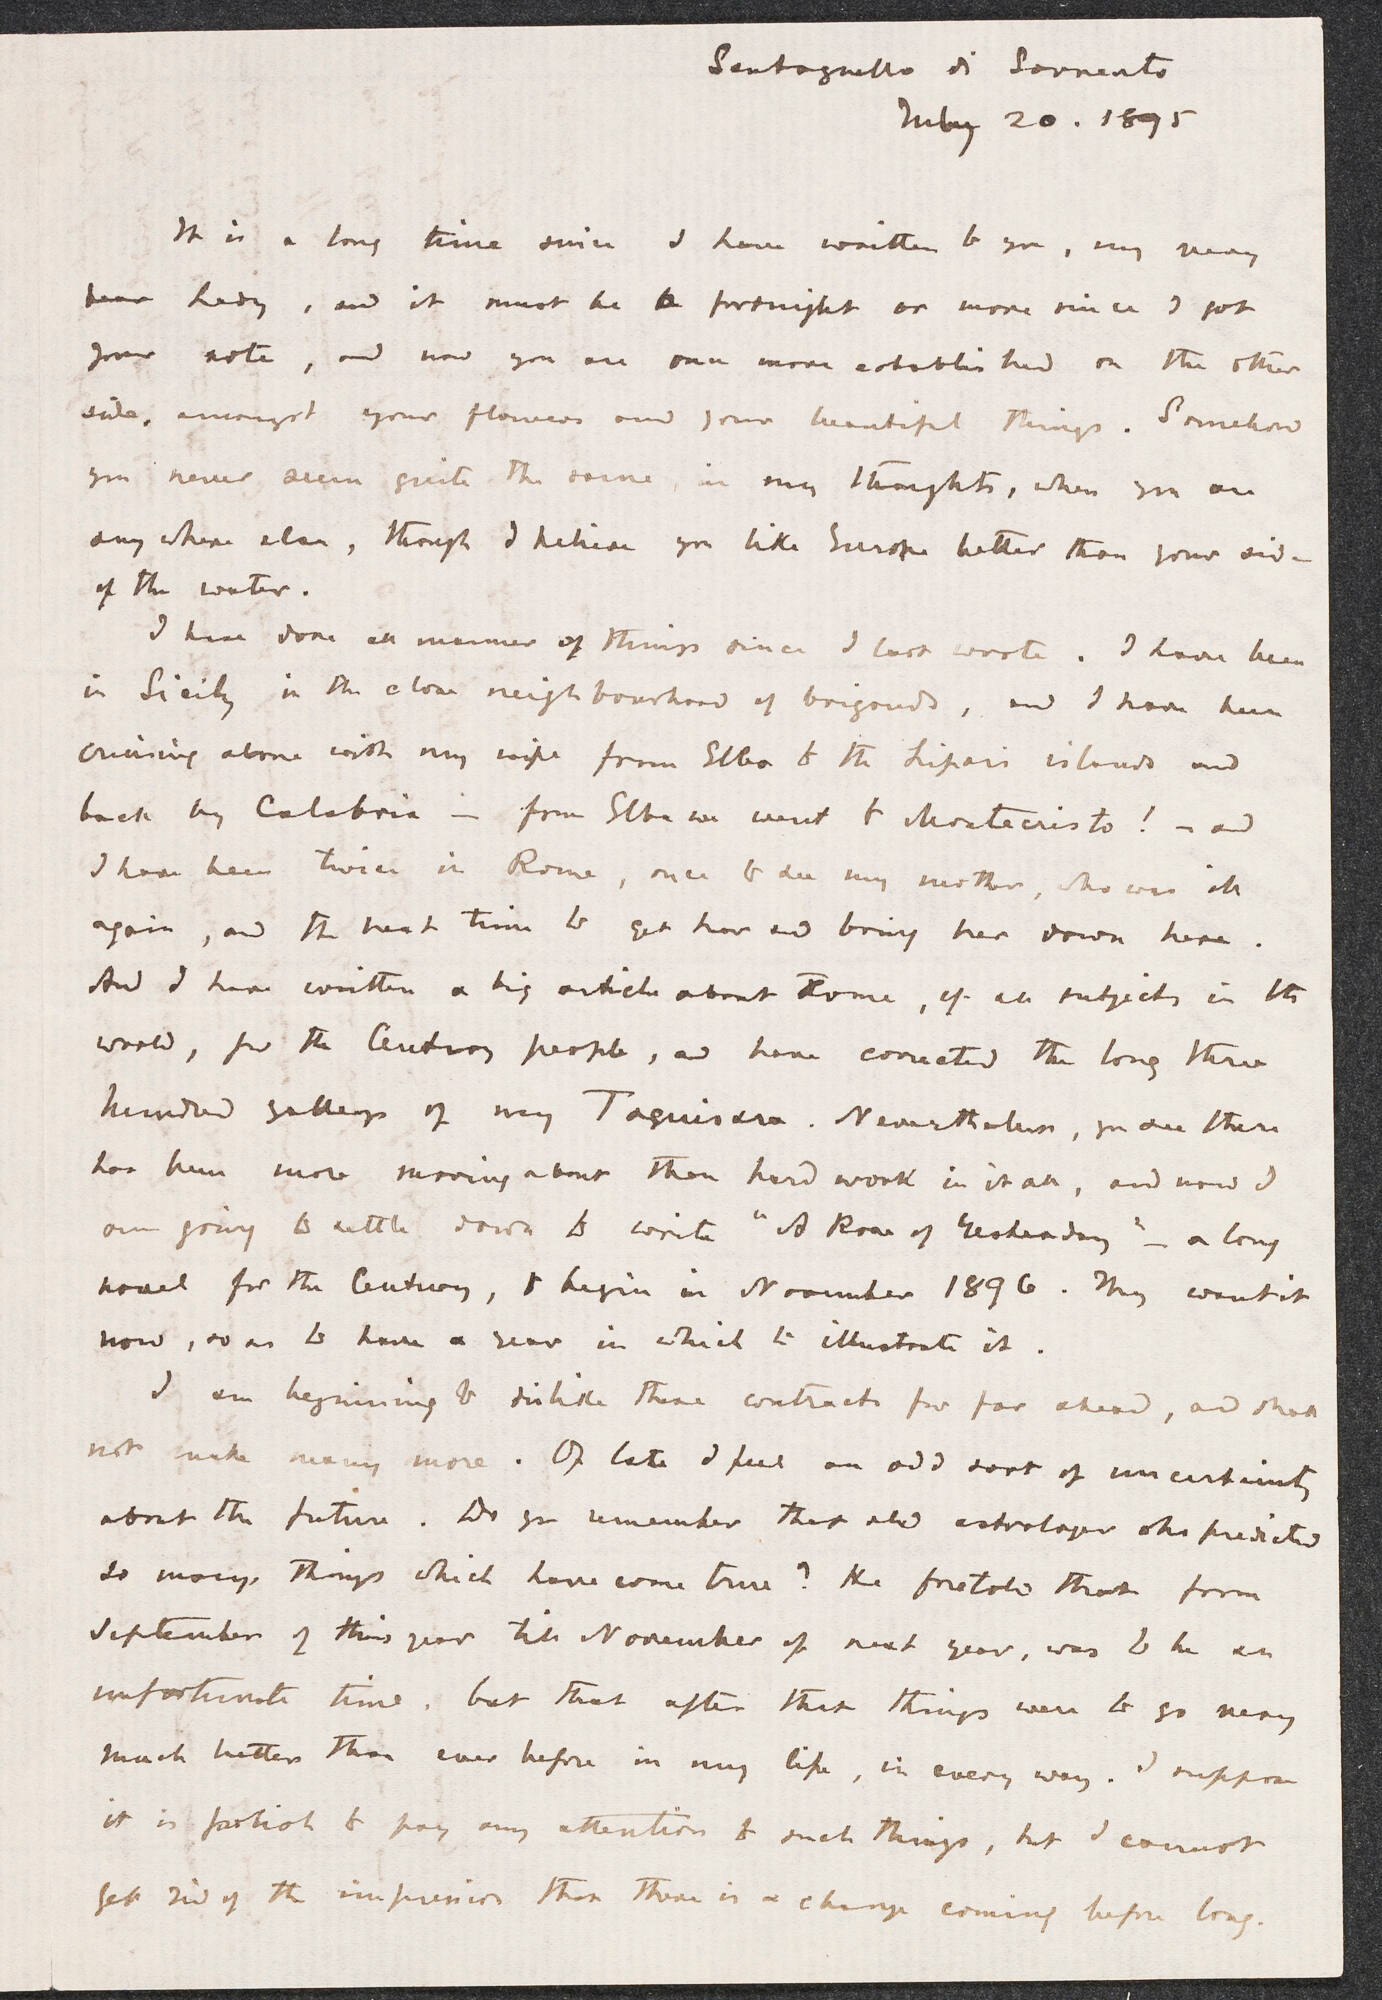 Santagnello di Sorrento
July 20. 1895
It is a long time since I have written to you, my very
dear Lady, and it must be a fortnight or more since I got
your note, and now you are once more established on the other
side, amongst your flowers and your beautiful things. Somehow
you never seem quite the same, in my thoughts, when you are
anywhere else, though I believe you like Europe better than your side
of the water.
I have done all manner of things since I last wrote. I have been
in Sicily in the close neighbourhood of brigands, and I have been
cruising alone with my wife from Elba to the Lipari islands and
back by Calabria — from Elba we went to Montecristo! — and
I have been twice in Rome, once to see my mother, who was ill
again, and the next time to get her and bring her down here.
And I have written a big article about Rome, of all subjects in the
world, for the Century people, and have corrected the long three
hundred galleys of my Taquisara. Nevertheless, you see there
has been more moving about than hard work in it all, and now I
am going to settle down to write "A Rose of Yesterday" — a long
novel for the Century, to begin in November 1896. They want it
now, so as to have a year in which to illustrate it.
I am beginning to dislike these contracts for far ahead, and shall
not make many more. Of late I feel an odd sort of uncertainty
about the future. Do you remember that old astrologer who predicted
so many things which have come true? He foretold that from
September of this year till November of next year, was to be an
unfortunate time, but that after that things were to go very
much better than ever before in my life, in every way. I suppose
it is foolish to pay any attention to such things, but I cannot
get rid of the impression that there is a change coming before long.